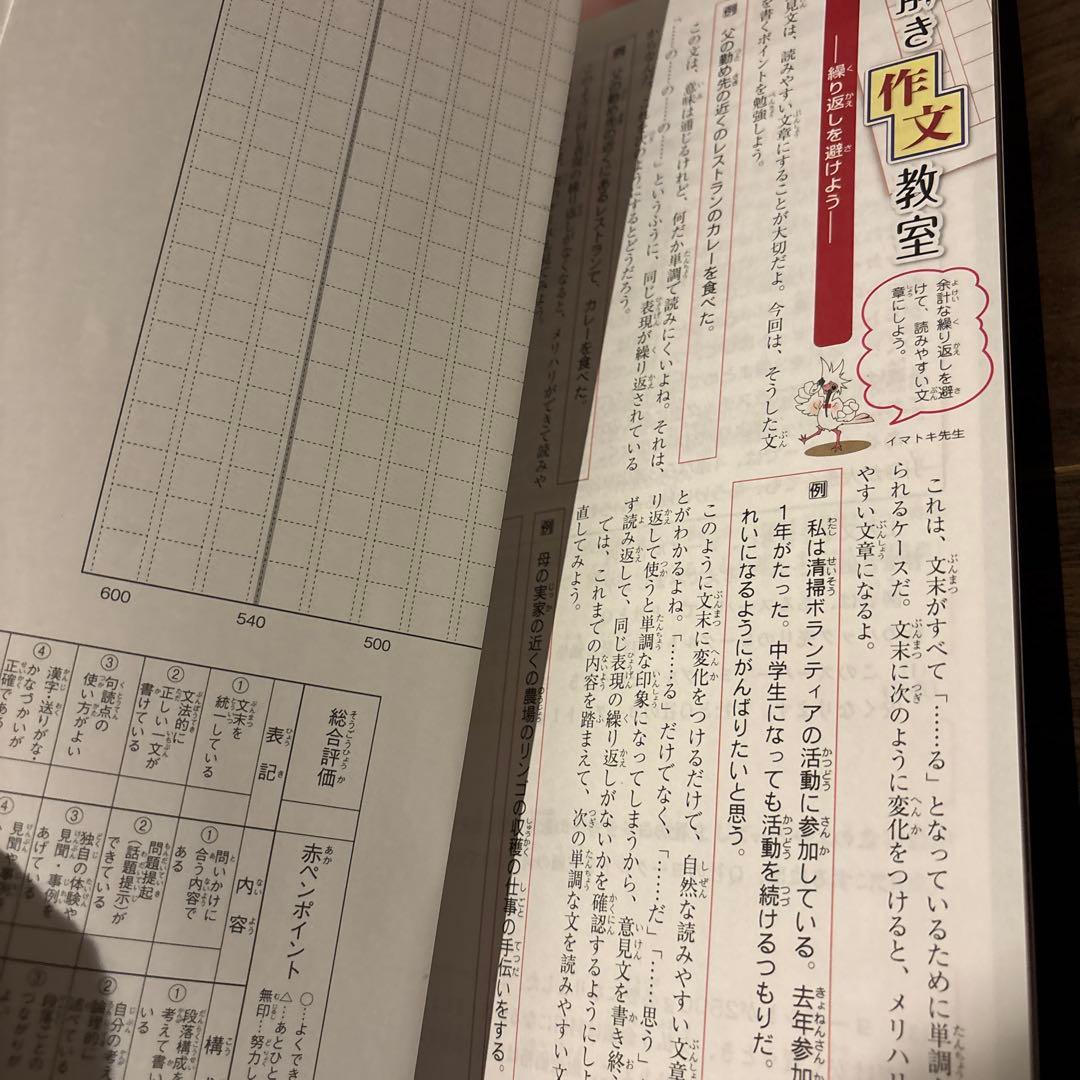 作文教室
―繰り返しを避けよう―
余計な繰り返しを避
けて、読みやすい文
章にしよう。
イマトキ先生
見文は、読みやすい文章にすることが大切だよ。今回は、そうした文
を書くポイントを勉強しよう。
例 父の勤め先の近くのレストランのカレーを食べた。
この文は、意味は通じるけれど、何だか単調で読みにくいよね。それは、
「……の……の……の……」というふうに、同じ表現が繰り返されている
これは、文末がすべて「……る」となっているために単調
られるケースだ。文末に次のように変化をつけると、メリハリ
やすい文章になるよ。
例 私は清掃ボランティアの活動に参加している。去年参加
1年がたった。中学生になっても活動を続けるつもりだ。
れいになるようにがんばりたいと思う。
このように文末に変化をつけるだけで、自然な読みやすい文章
とがわかるよね。「……る」だけでなく、「……だ」「……思う」
り返して使うと単調な印象になってしまうから、意見文を書き終
ず読み返して、同じ表現の繰り返しがないかを確認するようにしよ
では、これまでの内容を踏まえて、次の単調な文を読みやすい文
直してみよう。
例 母の実家の近くの農場のリンゴの収穫の仕事の手伝いをする。
600
540
500
総合評価
赤ペンポイント
○…よくでき
△…あとひと
無印…努力し
表記
①文末を
統一している
②文法的に
正しい一文が
書けている
③句読点の
使い方がよい
④漢字・送りがな・
かなづかいが
正確である
内容
①問いかけに
合う内容で
ある
②問題提起
(話題提示)が
できている
③独自の体験や
見聞・事例を
あげている
④
見聞や事
構
①段落構成を
考えて書い
いる
②自分の考え